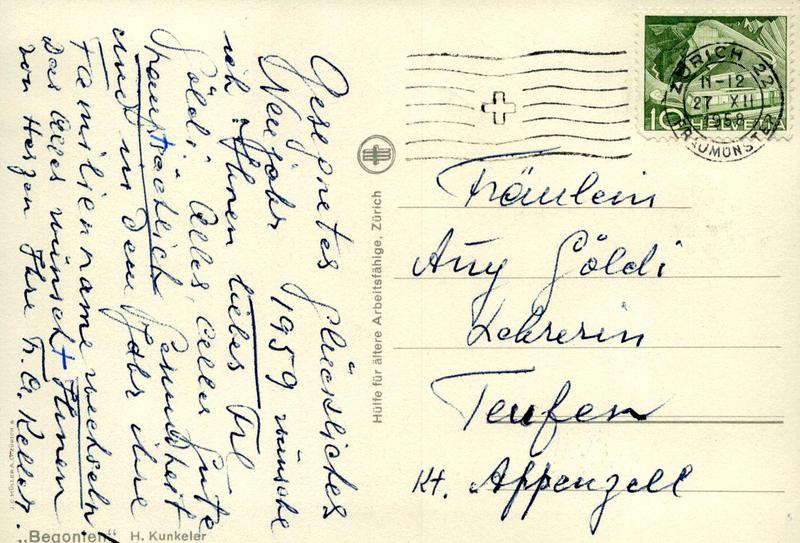 Gesegnetes glückliches
Neujahr 1959 wünsche
ich Ihnen liebes Frl
Göldi. Alles, alles Gute
hauptsächlich Gesundheit
und in dem Jahr ihre
Familienname wechseln!
Das alles wünscht Ihnen
von Herzen Ihre Keller.
„Begonien" H. Kunkeler
Hülfe für ältere Arbeitsfähige, Zürich
ZÜRICH 22
11-12
27 XII
1958
FRAUMÜNSTER
10 HELVETIA
Fräulein
Göldi
Lehrerin
Teufen
Kt. Appenzell